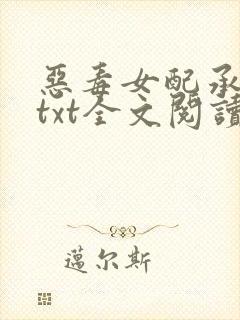 惡毒女配承
txt全文閱讀
邁尔斯